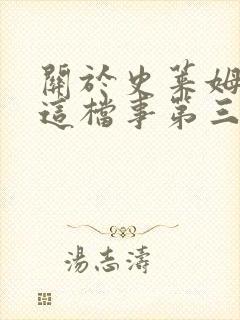 關於史萊姆
這檔事第三
湯志濤